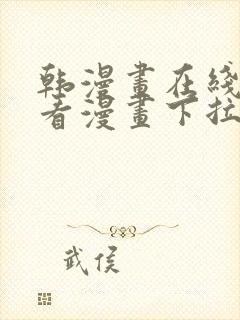 韩漫畫在綫
看漫畫下拉
武侯